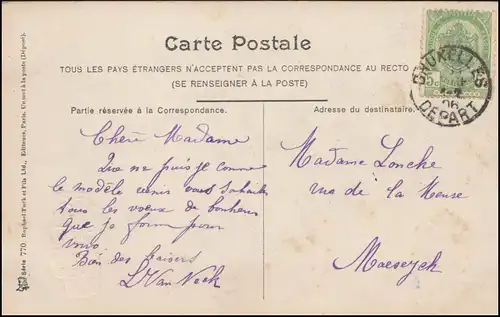 Carte Postale
TOUS LES PAYS ÉTRANGERS N'ACCEPTENT PAS LA CORRESPONDANCE AU RECTO
(SE RENSEIGNER À LA POSTE)
Partie réservée à la Correspondance.
Adresse du destinataire.
Chère Madame
Que ne puis je comme
le modèle vous souhaiter
tous les voeux de bonheur
que je forme pour
vous
Bon des baisers
L Van Neck
Madame Lonche
rua de la Meuse
Maeseyck
BRUXELLES
06
DEPART
Série 770. Raphael Tuck et Fils Ltd., Editeurs, Paris. Un mot à la poste (Déposé).